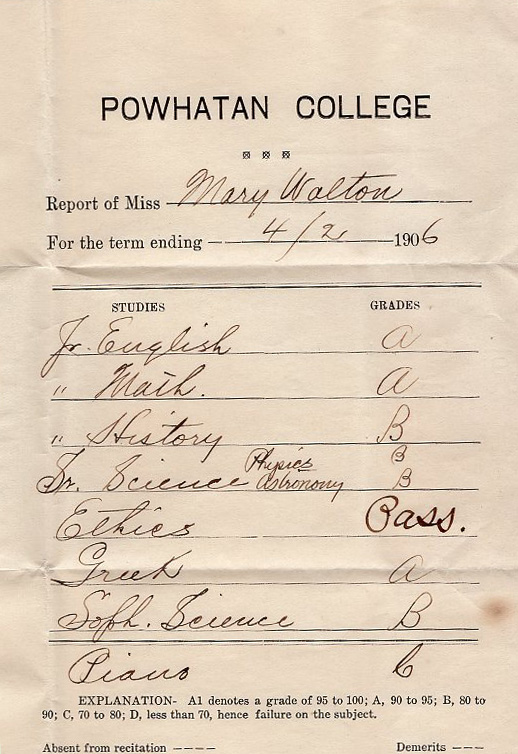 POWHATAN COLLEGE
Report of Miss Mary Walton
For the term ending — 4/2 — 1906
STUDIES GRADES
Jr. English A
" Math. A
" History B
Sr. Science Physics B
Astronomy B
Ethics Pass.
Greek A
Soph. Science B
Piano C
EXPLANATION- A1 denotes a grade of 95 to 100; A, 90 to 95; B, 80 to
90; C, 70 to 80; D, less than 70, hence failure on the subject.
Absent from recitation ———— Demerits ———